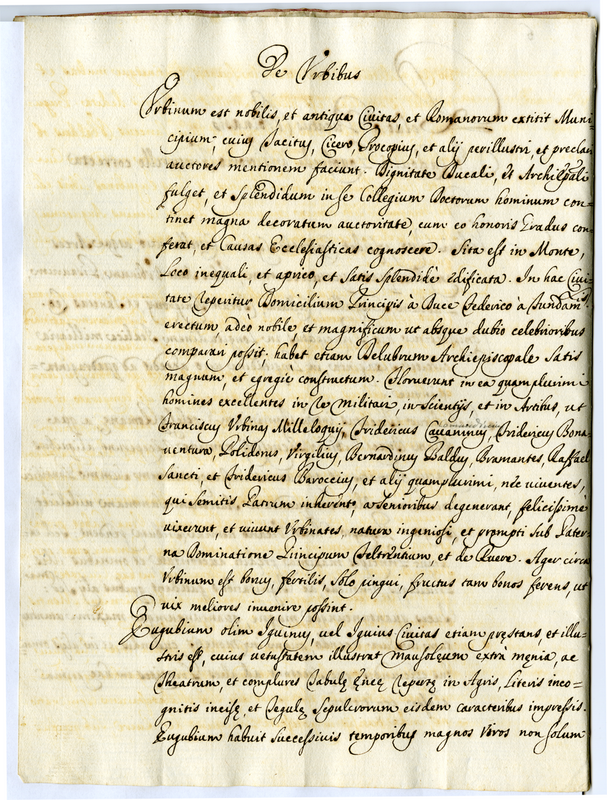 De Vrbibus
Vrbinum est nobilis, et antiqua Ciuitas, et Romanorum extitit Muni-
cipium; cuius Tacitus, Cicero, Procopius, et alij perillustri, et preclari
auctores mentionem faciunt. Dignitate Ducali, et Archiepāli
fulget, et splendidum in se Collegium Doctorum hominum con=
tinet magna decoratum auctoritate, cum eo honoris Gradus con=
ferat, et Causas Ecclesiasticas cognoscere. Sita est in Monte,
Loco inequali, et aprico, et satis splendidè ędificata. In hac Ciui=
tate reperitur Domicilium Principis à Duce Federico à fundam.tis
erectum, adeò nobile, et magnificum ut absque dubio celebrioribus
comparari possit; habet etiam Delubrum Archiepiscopale satis
magnum, et egregiè constructum. Floruerunt in ea quamplurimi
homines excellentes in re militari, in scientijs, et in Artibus, ut
Franciscus Vrbinas Milleloquij, Fridericus, Fridericus Bona=
uentura, Polidorus, Virgilius, Bernardinus Baldus, Bramantes, Raffael
Sancti, et Fridericus Baroccius, et alij quamplurimi, nec uiuentes,
qui semitis Patrum inherent, a senioribus degenerant, felicissimè
uixerunt, et uiuunt Vrbinates, natura ingeniosi, et prompti sub Pater=
na Dominatione Principum Feltrentium, et de Ruere. Ager circa
Vrbinum est bonus, fertilis, solo pingui, fructus tam bonos ferens, ut
uix meliores inuenire possint.
Eugubium olim Iguinus, uel Iguius Ciuitas etiam pręstans, et illu=
stris est, cuius uetustatem illustrat Mausoleum extrà męnia, ac
Theatrum, et complures Tabulę Ęneę repertę in Agris, Literis inco=
gnitis incisę, et Tegulę sepulcrorum eisdem caracteribus impressis.
Eugubium habuit successiuis temporibus magnos Viros non solum